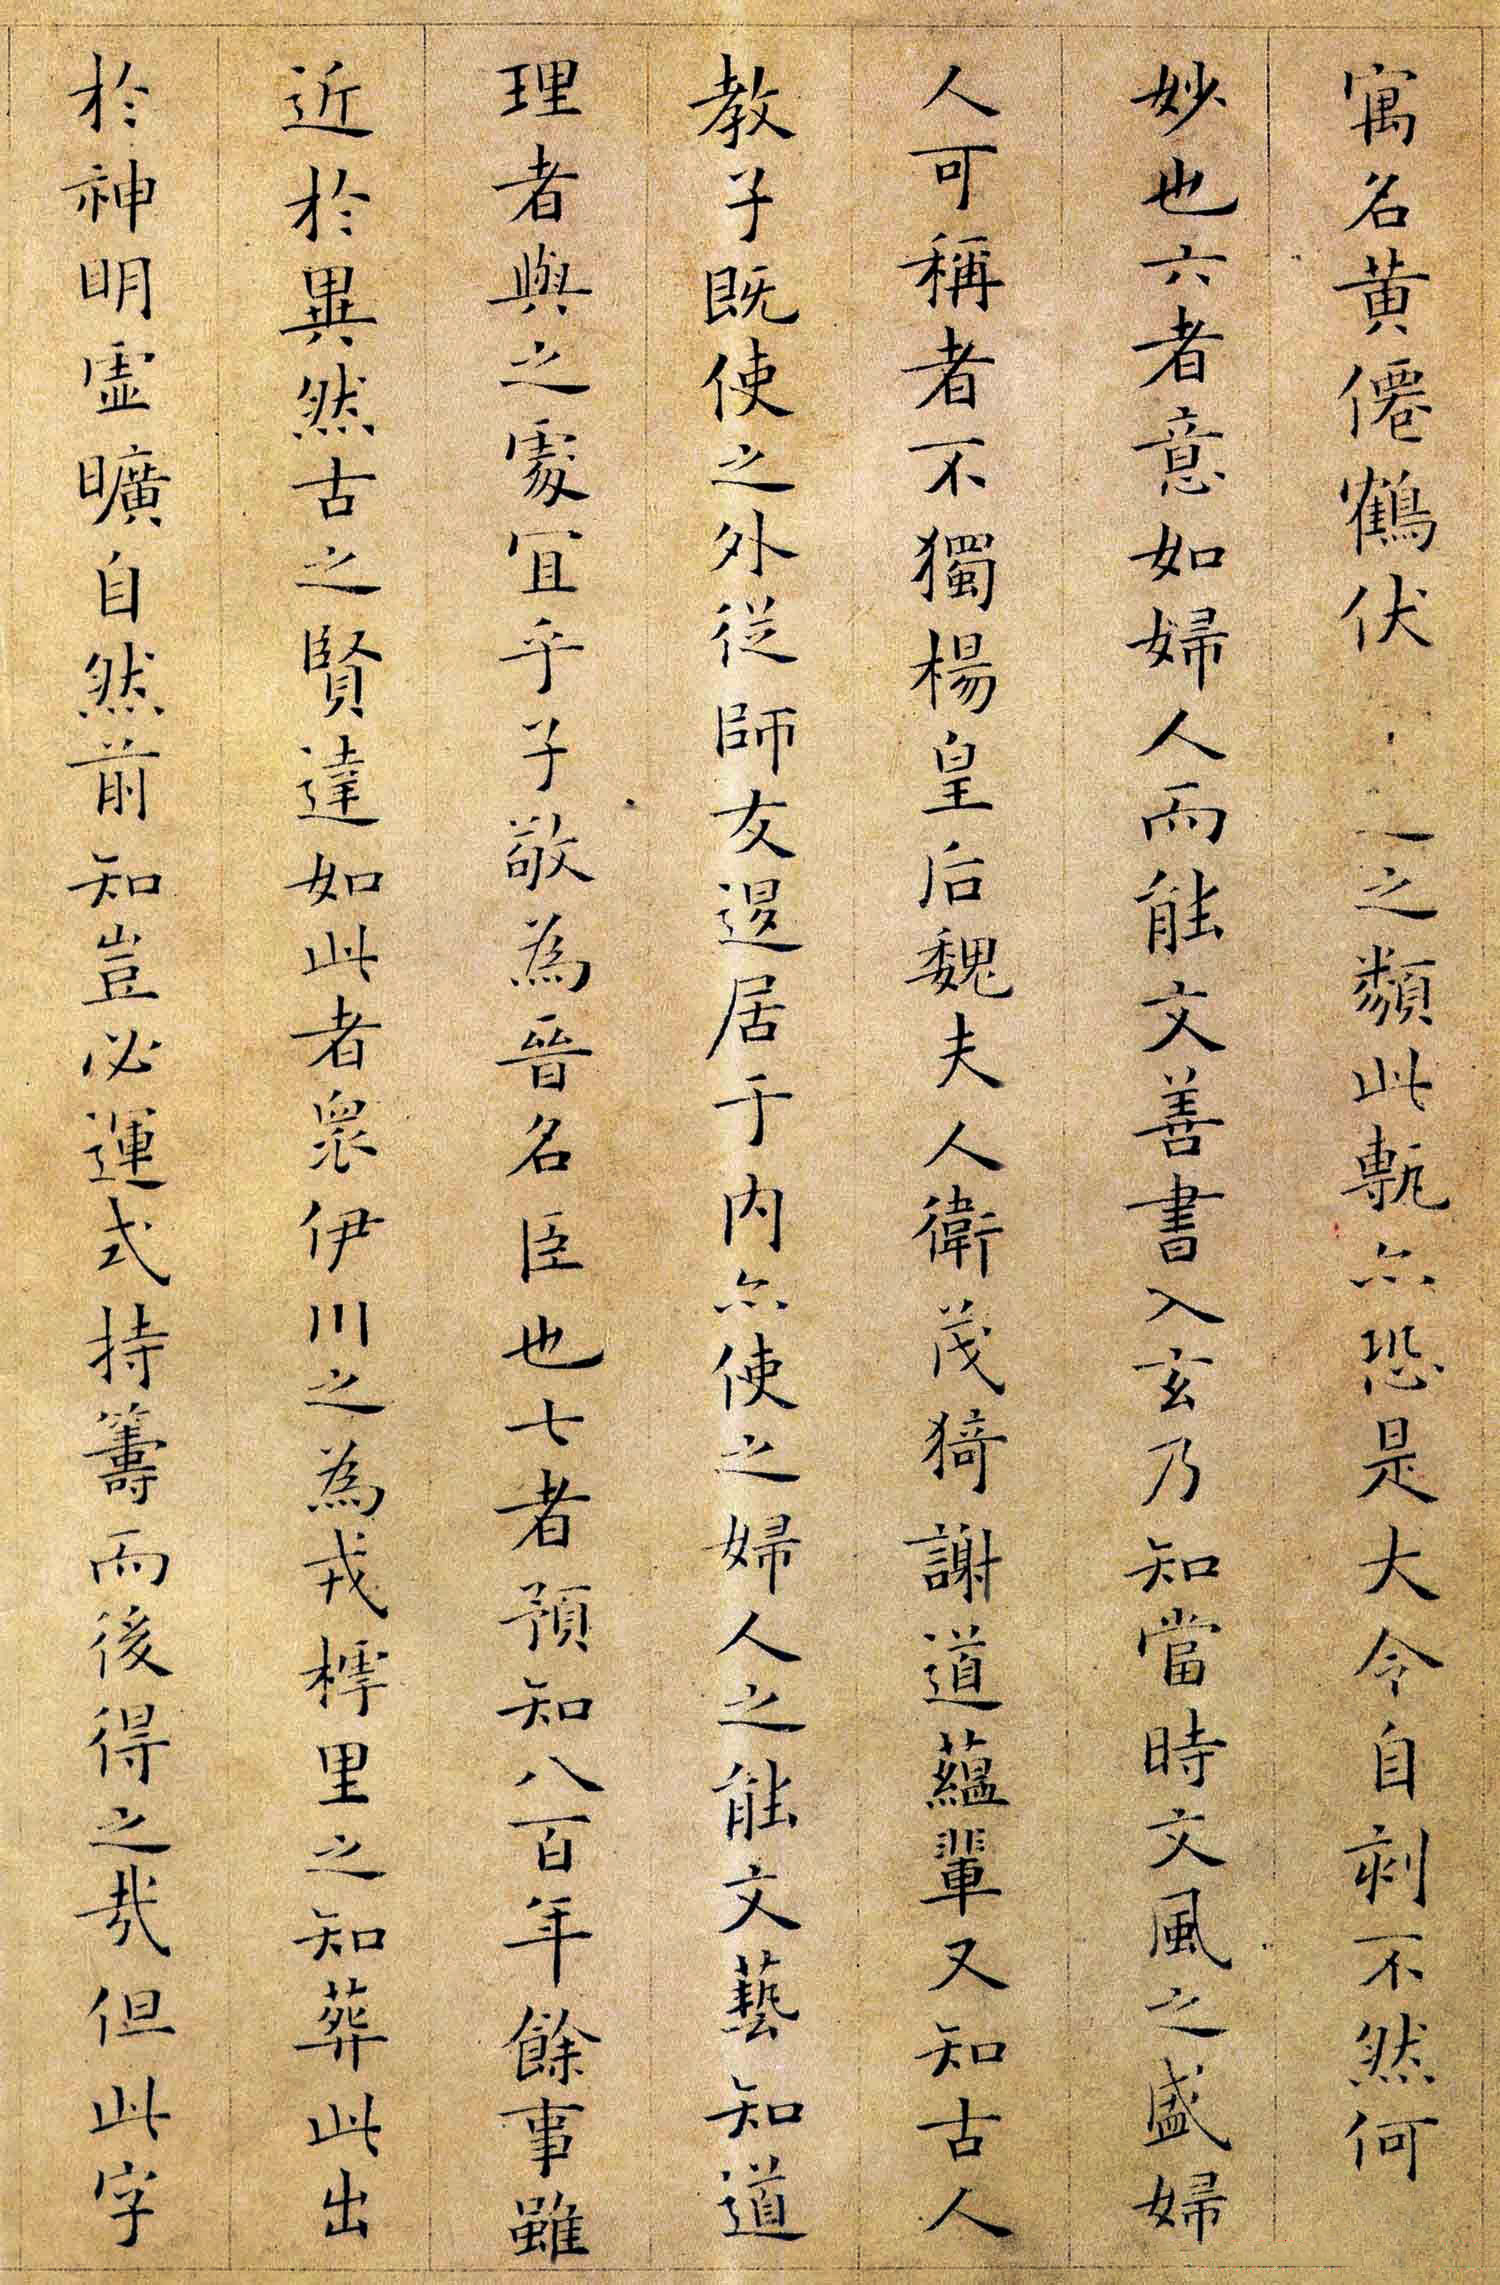 寓名黃僊鶴伏之類此甎亦恐是大令自刻不然何
妙也六者意如婦人而能文善書入玄乃知當時文風之盛婦
人可稱者不獨楊皇后魏夫人衛茂猗謝道蘊輩又知古人
教子既使之外從師友退居于內亦使之婦人之能文藝知道
理者與之處宜乎子敬為晉名臣也七者預知八百年餘事雖
近於異然古之賢達如此者衆伊川之為戎樗里之知葬此出
於神明虛曠自然前知豈必運式持籌而後得之哉但此字